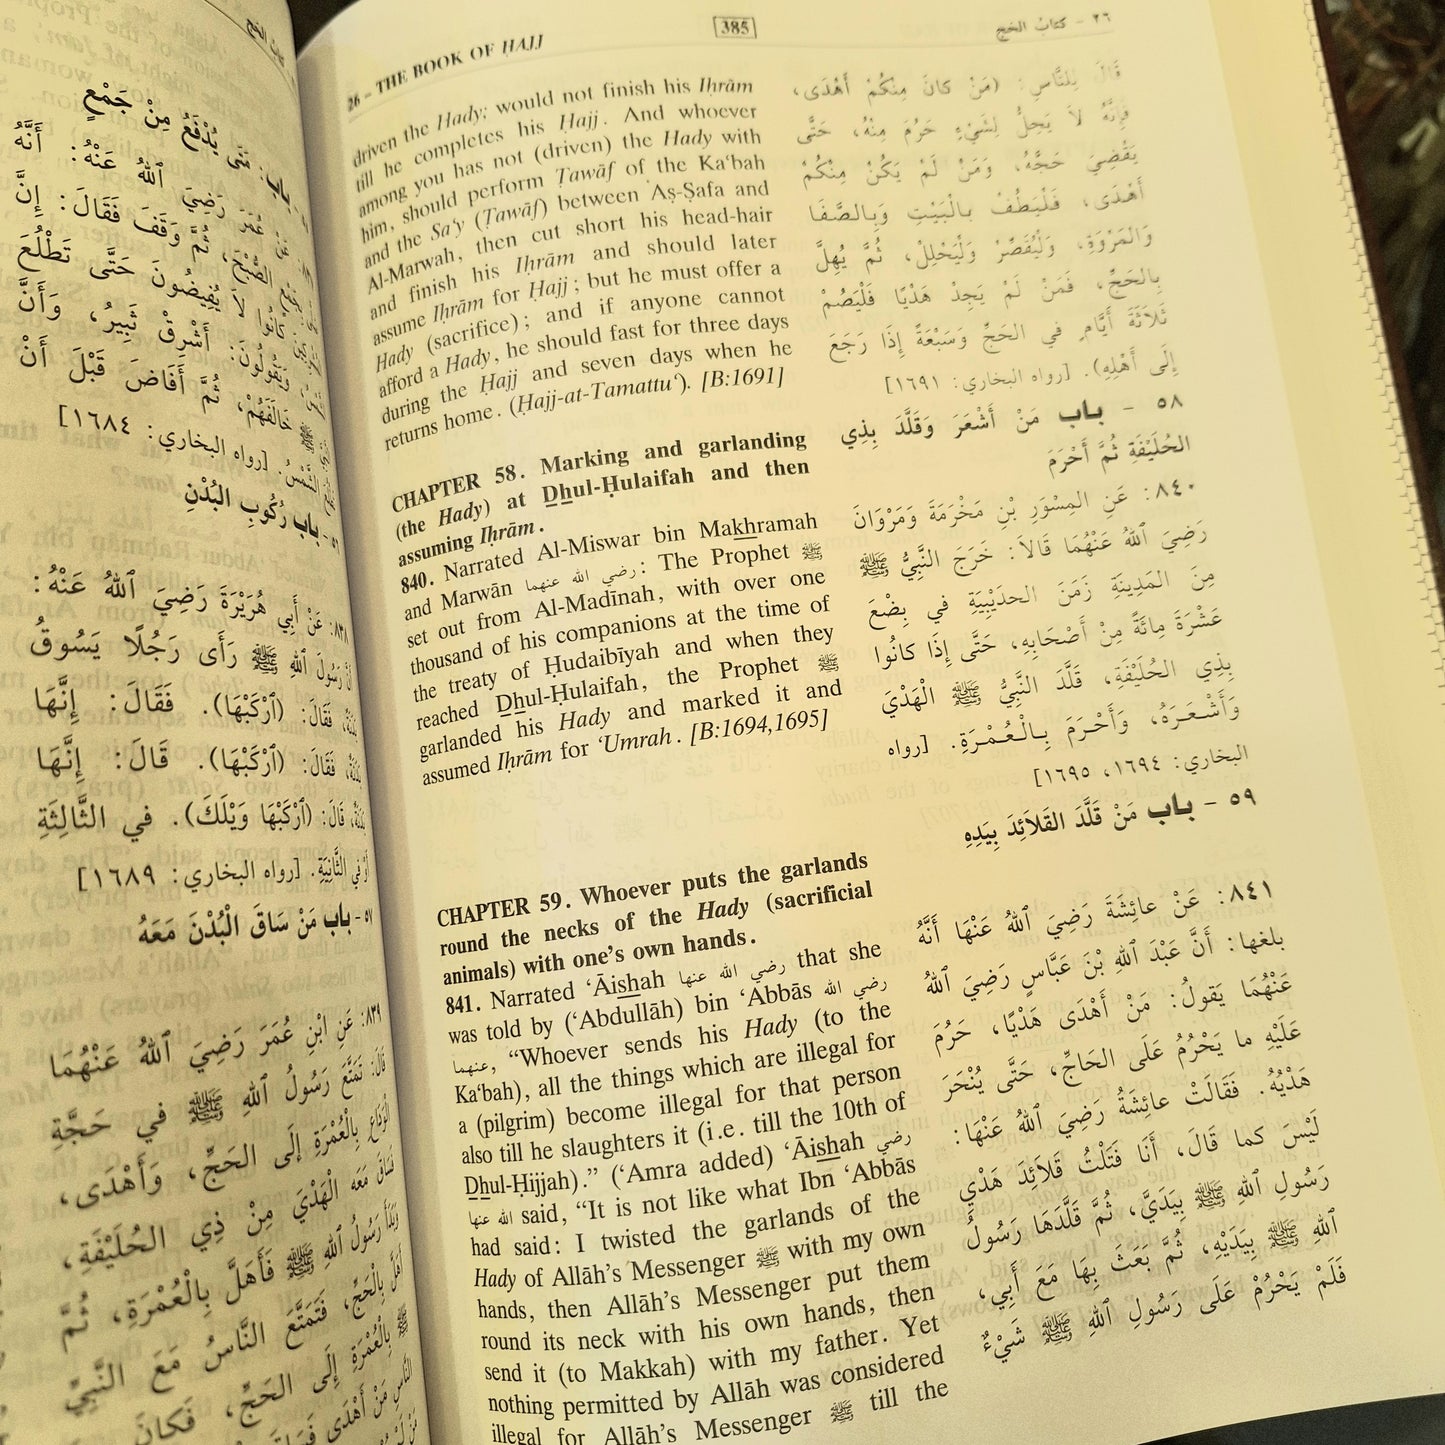 26 – THE BOOK OF ḤAJJ
385
٢٦ - كتابُ الحَج
driven the Hady; would not finish his Iḥrām
till he completes his Hajj. And whoever
among you has not (driven) the Hady with
him, should perform Ṭawāf of the Ka‘bah
and the Sa‘y (Ṭawāf) between Aṣ-Ṣafa and
Al-Marwah, then cut short his head-hair
and finish his Iḥrām and should later
assume Iḥrām for Ḥajj; but he must offer a
Hady (sacrifice); and if anyone cannot
afford a Hady, he should fast for three days
during the Ḥajj and seven days when he
returns home. (Ḥajj-at-Tamattu‘). [B:1691]
CHAPTER 58. Marking and garlanding
(the Hady) at Dhul-Ḥulaifah and then
assuming Iḥrām.
840. Narrated Al-Miswar bin Makhramah
and Marwān رضي الله عنهما: The Prophet ﷺ
set out from Al-Madīnah, with over one
thousand of his companions at the time of
the treaty of Ḥudaibīyah and when they
reached Dhul-Ḥulaifah, the Prophet ﷺ
garlanded his Hady and marked it and
assumed Iḥrām for ‘Umrah. [B:1694,1695]
CHAPTER 59. Whoever puts the garlands
round the necks of the Hady (sacrificial
animals) with one’s own hands.
841. Narrated ‘Āishah رضي الله عنها that she
was told by (‘Abdullāh) bin ‘Abbās رضي الله
عنهما, “Whoever sends his Hady (to the
Ka‘bah), all the things which are illegal for
a (pilgrim) become illegal for that person
also till he slaughters it (i.e. till the 10th of
Dhul-Ḥijjah).” (‘Amra added) ‘Āishah رضي
الله عنها said, “It is not like what Ibn ‘Abbās
had said: I twisted the garlands of the
Hady of Allāh’s Messenger ﷺ with my own
hands, then Allāh’s Messenger put them
round its neck with his own hands, then
send it (to Makkah) with my father. Yet
nothing permitted by Allāh was considered
illegal for Allāh’s Messenger ﷺ till the
قَالَ لِلنَّاسِ: (مَنْ كانَ مِنْكُمْ أَهْدَى،
فَإِنَّهُ لاَ يَحِلُّ لِشَيْءٍ حَرُمَ مِنْهُ، حَتَّى
يَقْضِيَ حَجَّهُ، وَمَنْ لَمْ يَكُنْ مِنْكُمْ
أَهْدَى، فَلْيَطُفْ بِالْبَيْتِ وَبِالصَّفَا
وَالمَرْوَةِ، وَلْيُقَصِّرْ وَلْيَحْلِلْ، ثُمَّ يُهِلَّ
بِالحَجِّ، فَمَنْ لَمْ يَجِدْ هَدْيًا فَلْيَصُمْ
ثَلاَثَةَ أَيَّامٍ في الحَجِّ وَسَبْعَةً إِذَا رَجَعَ
إِلَى أَهْلِهِ). [رواه البخاري: ١٦٩١]
٥٨ - باب مَنْ أَشْعَرَ وَقَلَّدَ بِذِي
الحُلَيْفَةِ ثُمَّ أَحْرَمَ
٨٤٠: عَنِ المِسْوَرِ بْنِ مَخْرَمَةَ وَمَرْوَانَ
رَضِيَ ٱللهُ عَنْهُمَا قَالاَ: خَرَجَ النَّبِيُّ ﷺ
مِنَ المَدِينَةِ زَمَنَ الحدَيْبِيَةِ في بِضْعَ
عَشْرَةَ مِائَةً مِنْ أَصْحَابِهِ، حَتَّى إِذَا كانُوا
بِذِي الحُلَيْفَةِ، قَلَّدَ النَّبِيُّ ﷺ الْهَدْيَ
وَأَشْعَرَهُ، وَأَحْرَمَ بِالْعُمْرَةِ. [رواه
البخاري: ١٦٩٤، ١٦٩٥]
٥٩ - باب مَنْ قَلَّدَ القَلاَئِدَ بِيَدِهِ
٨٤١: عَنْ عائِشَةَ رَضِيَ ٱللهُ عَنْهَا أَنَّهُ
بلغها: أَنَّ عَبْدَ ٱللهِ بْنَ عَبَّاسٍ رَضِيَ ٱللهُ
عَنْهُمَا يَقولُ: مَنْ أَهْدَى هَدْيًا، حَرُمَ
عَلَيْهِ ما يَحْرُمُ عَلَى الحَاجِّ، حَتَّى يُنْحَرَ
هَدْيُهُ. فَقَالَتْ عائِشَةُ رَضِيَ ٱللهُ عَنْهَا:
لَيْسَ كما قَالَ، أَنَا فَتَلْتُ قَلاَئِدَ هَدْيِ
رَسُولِ ٱللهِ ﷺ بِيَدَيَّ، ثُمَّ قَلَّدَهَا رَسُولُ
ٱللهِ ﷺ بِيَدَيْهِ، ثُمَّ بَعَثَ بِهَا مَعَ أَبِي،
فَلَمْ يَحْرُمْ عَلَى رَسُولِ ٱللهِ ﷺ شَيْءٌ
كتابُ الحَج
باب: مَتَى يُدْفَعُ مِنْ جَمْعٍ
عُمَرَ رَضِيَ ٱللهُ عَنْهُ: أَنَّهُ
الصُّبْحَ، ثُمَّ وَقَفَ فَقَالَ: إِنَّ
كانُوا لاَ يُفِيضُونَ حَتَّى تَطْلُعَ
وَيَقُولُونَ: أَشْرِقْ ثَبِيرُ، وَأَنَّ
ﷺ خَالَفَهُمْ، ثُمَّ أَفَاضَ قَبْلَ أَنْ
الشَّمْسُ. [رواه البخاري: ١٦٨٤]
٥٦ - باب رُكُوبِ البُدْنِ
٨٣٨: عَنْ أَبِي هُرَيْرَةَ رَضِيَ ٱللهُ عَنْهُ:
أَنَّ رَسُولَ ٱللهِ ﷺ رَأَى رَجُلًا يَسُوقُ
بَدَنَةً، فَقَالَ: (ٱرْكَبْهَا). فَقَالَ: إِنَّهَا
بَدَنَةٌ، فَقَالَ: (ٱرْكَبْهَا). قَالَ: إِنَّهَا
بَدَنَةٌ، قَالَ: (ٱرْكَبْهَا وَيْلَكَ). في الثَّالِثَةِ
أَوْ في الثَّانِيَةِ. [رواه البخاري: ١٦٨٩]
٥٧ - باب مَنْ سَاقَ الْبُدْنَ مَعَهُ
٨٣٩: عَنِ ابْنِ عُمَرَ رَضِيَ ٱللهُ عَنْهُمَا
قَالَ: تَمَتَّعَ رَسُولُ ٱللهِ ﷺ في حَجَّةِ
الْوَدَاعِ بِالْعُمْرَةِ إِلَى الحَجِّ، وَأَهْدَى،
فَسَاقَ مَعَه الْهَدْيَ مِنْ ذِي الحُلَيْفَةِ،
وَبَدَأَ رَسُولُ ٱللهِ ﷺ فَأَهَلَّ بِالْعُمْرَةِ، ثُمَّ
أَهَلَّ بِالْحَجِّ، فَتَمَتَّعَ النَّاسُ مَعَ النَّبِيِّ
ﷺ بِالْعُمْرَةِ إِلَى الحَجِّ، فَكانَ
النَّاسِ مَنْ أَهْدَى